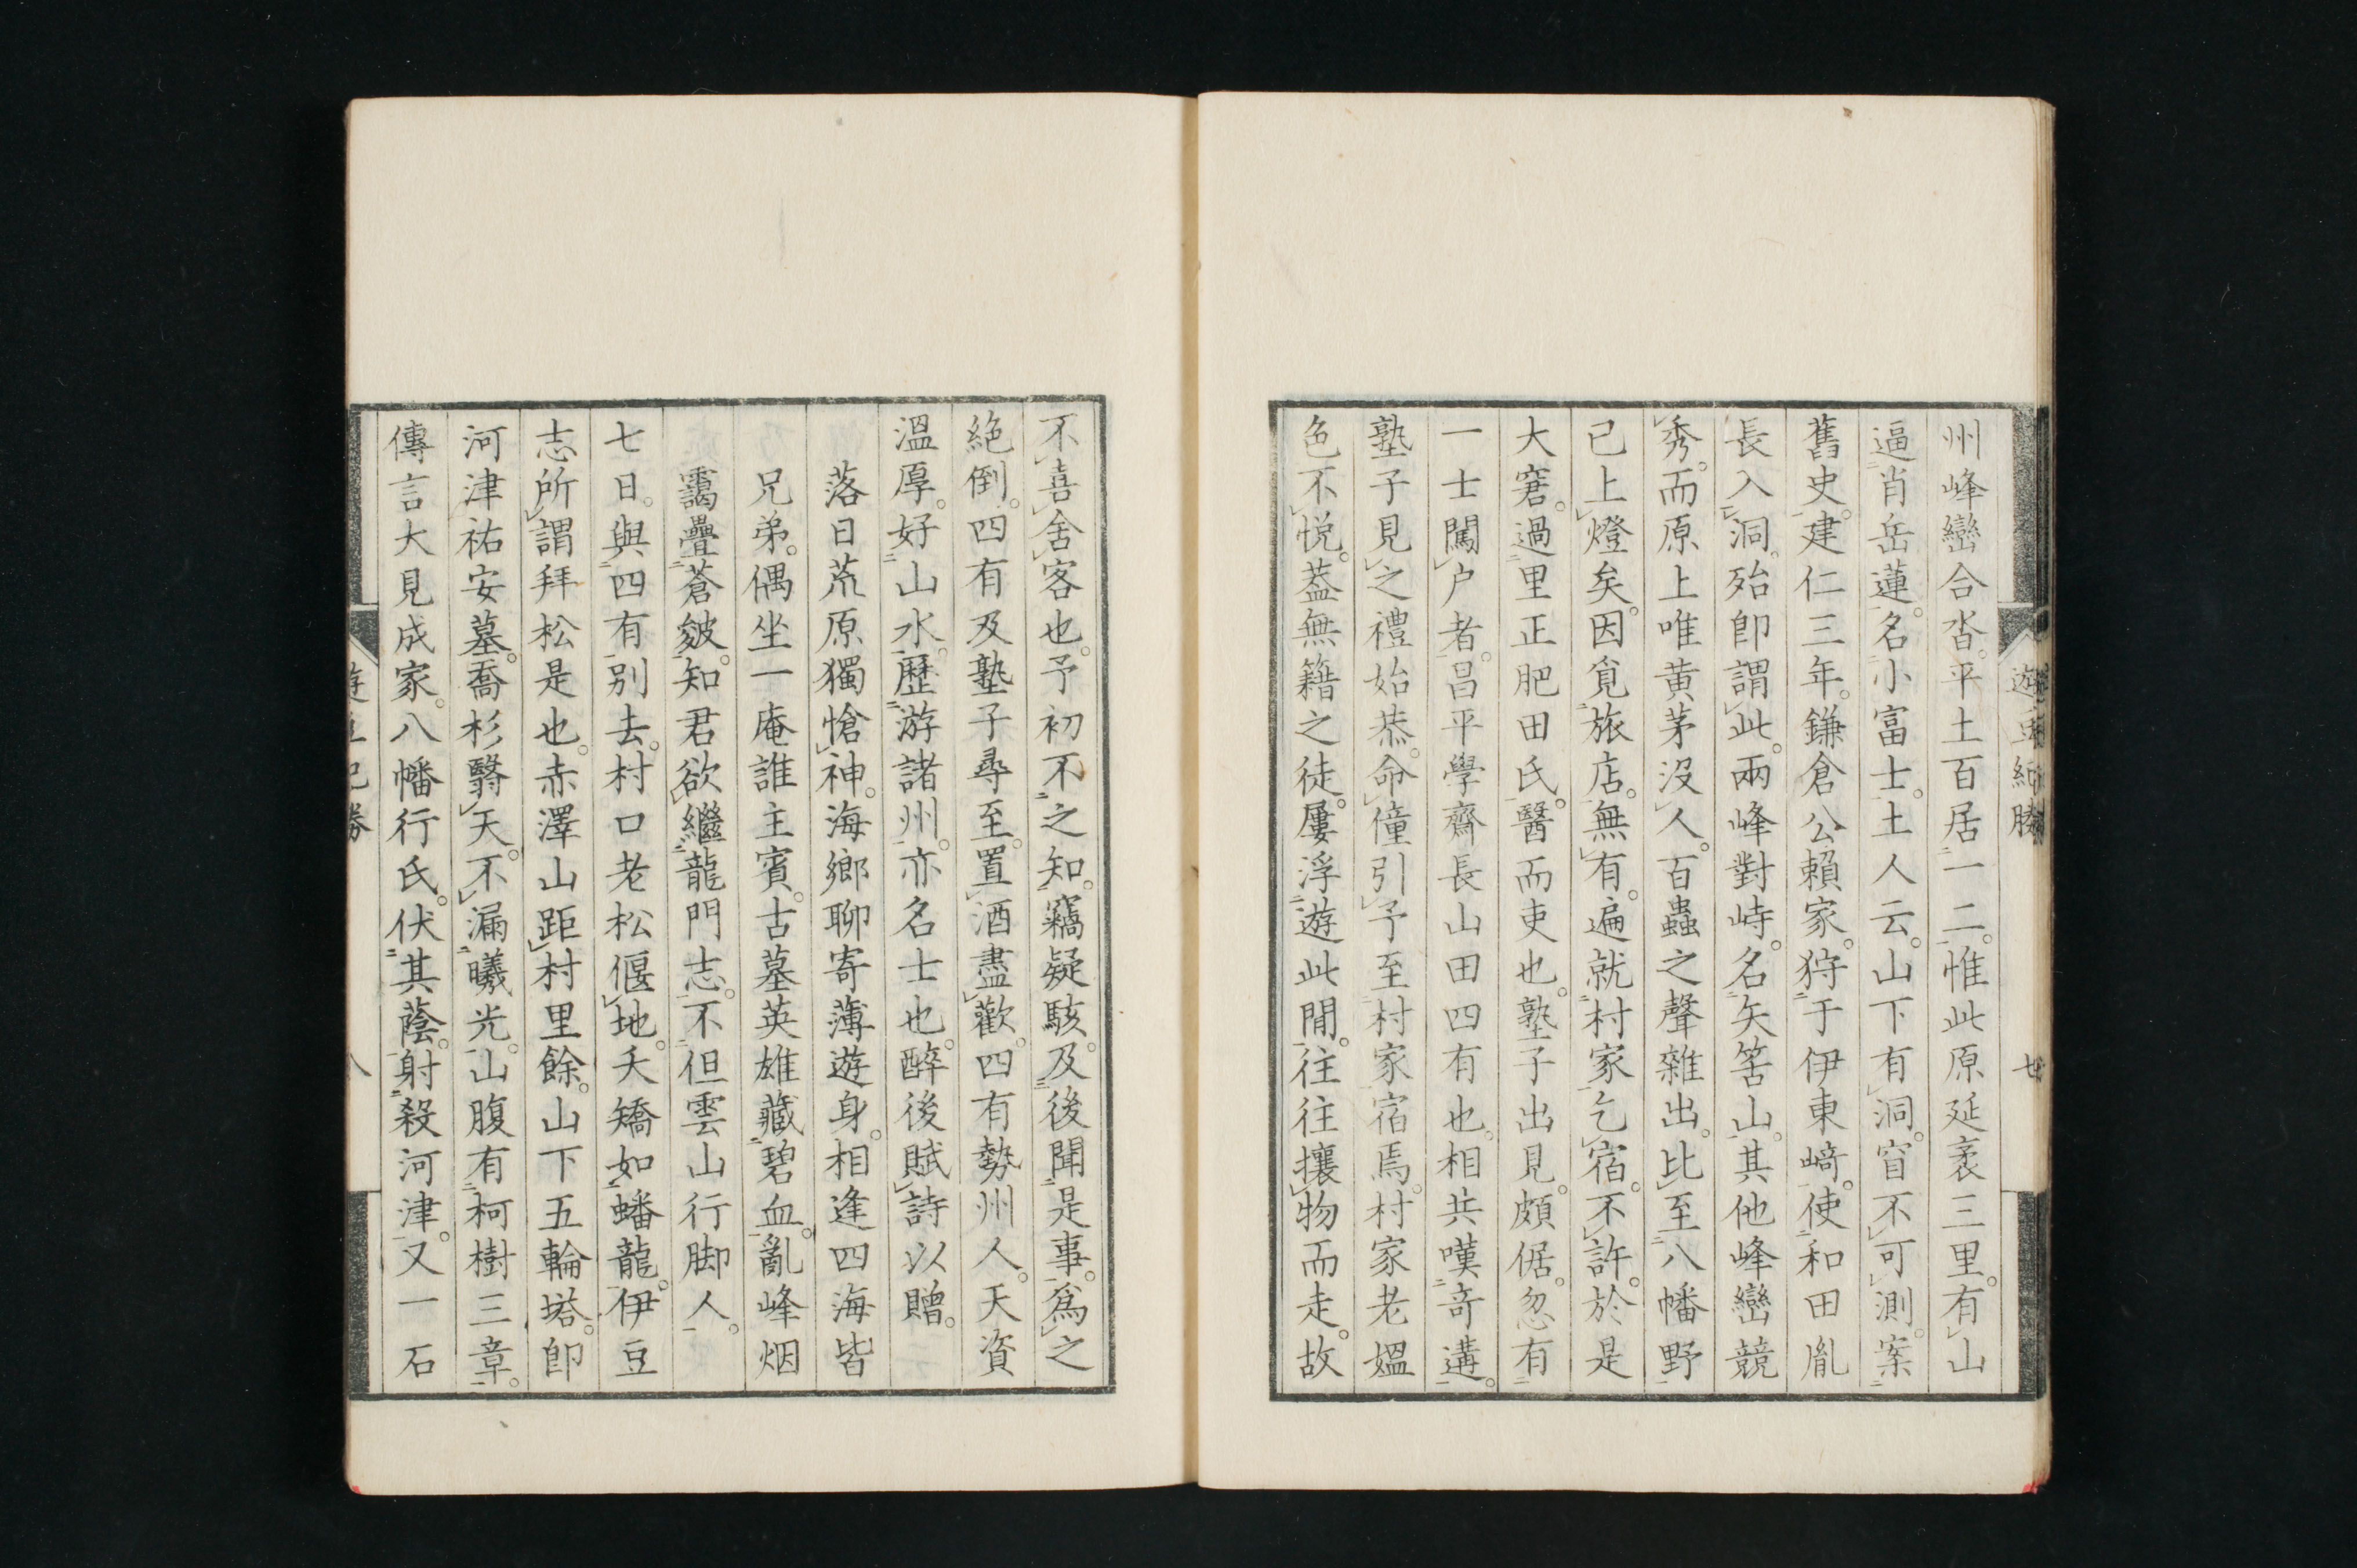 遊豆紀勝
七
州峰巒合沓。平土百居一二。惟此原延袤三里。有山
逼肖岳蓮。名小富士。土人云。山下有洞。窅不可測。案
舊史。建仁三年。鎌倉公賴家。狩于伊東﨑。使和田胤
長入洞。殆卽謂此。兩峰對峙。名矢筈山。其他峰巒競
秀。而原上唯黄茅沒人。百蟲之聲雜出。比至八幡野
已上燈矣。因覓旅店。無有。遍就村家乞宿。不許。於是
大窘。過里正肥田氏。醫而吏也。塾子出見。頗倨。忽有
一士闖户者。昌平學齋長山田四有也。相共嘆奇遘。
塾子見之禮始恭。命僮引予至村家宿焉。村家老媼
色不悦。葢無籍之徒。屢浮遊此間。往往攘物而走。故
不喜舍客也。予初不之知。竊疑駭。及後聞是事。爲之
絶倒。四有及塾子尋至。置酒盡歡。四有勢州人。天資
溫厚。好山水。歷游諸州。亦名士也。醉後賦詩以贈。
落日荒原獨愴神。海鄉聊寄薄遊身。相逢四海皆
兄弟。偶坐一庵誰主賓。古墓英雄藏碧血。亂峰烟
靄疊蒼皴。知君欲繼龍門志。不但雲山行脚人。
七日。與四有別去。村口老松偃地。夭矯如蟠龍。伊豆
志所謂拜松是也。赤澤山距村里餘。山下五輪塔。卽
河津祐安墓。喬杉翳天。不漏曦光。山腹有柯樹三章。
傳言大見成家。八幡行氏。伏其蔭。射殺河津。又一石
遊豆紀勝
八